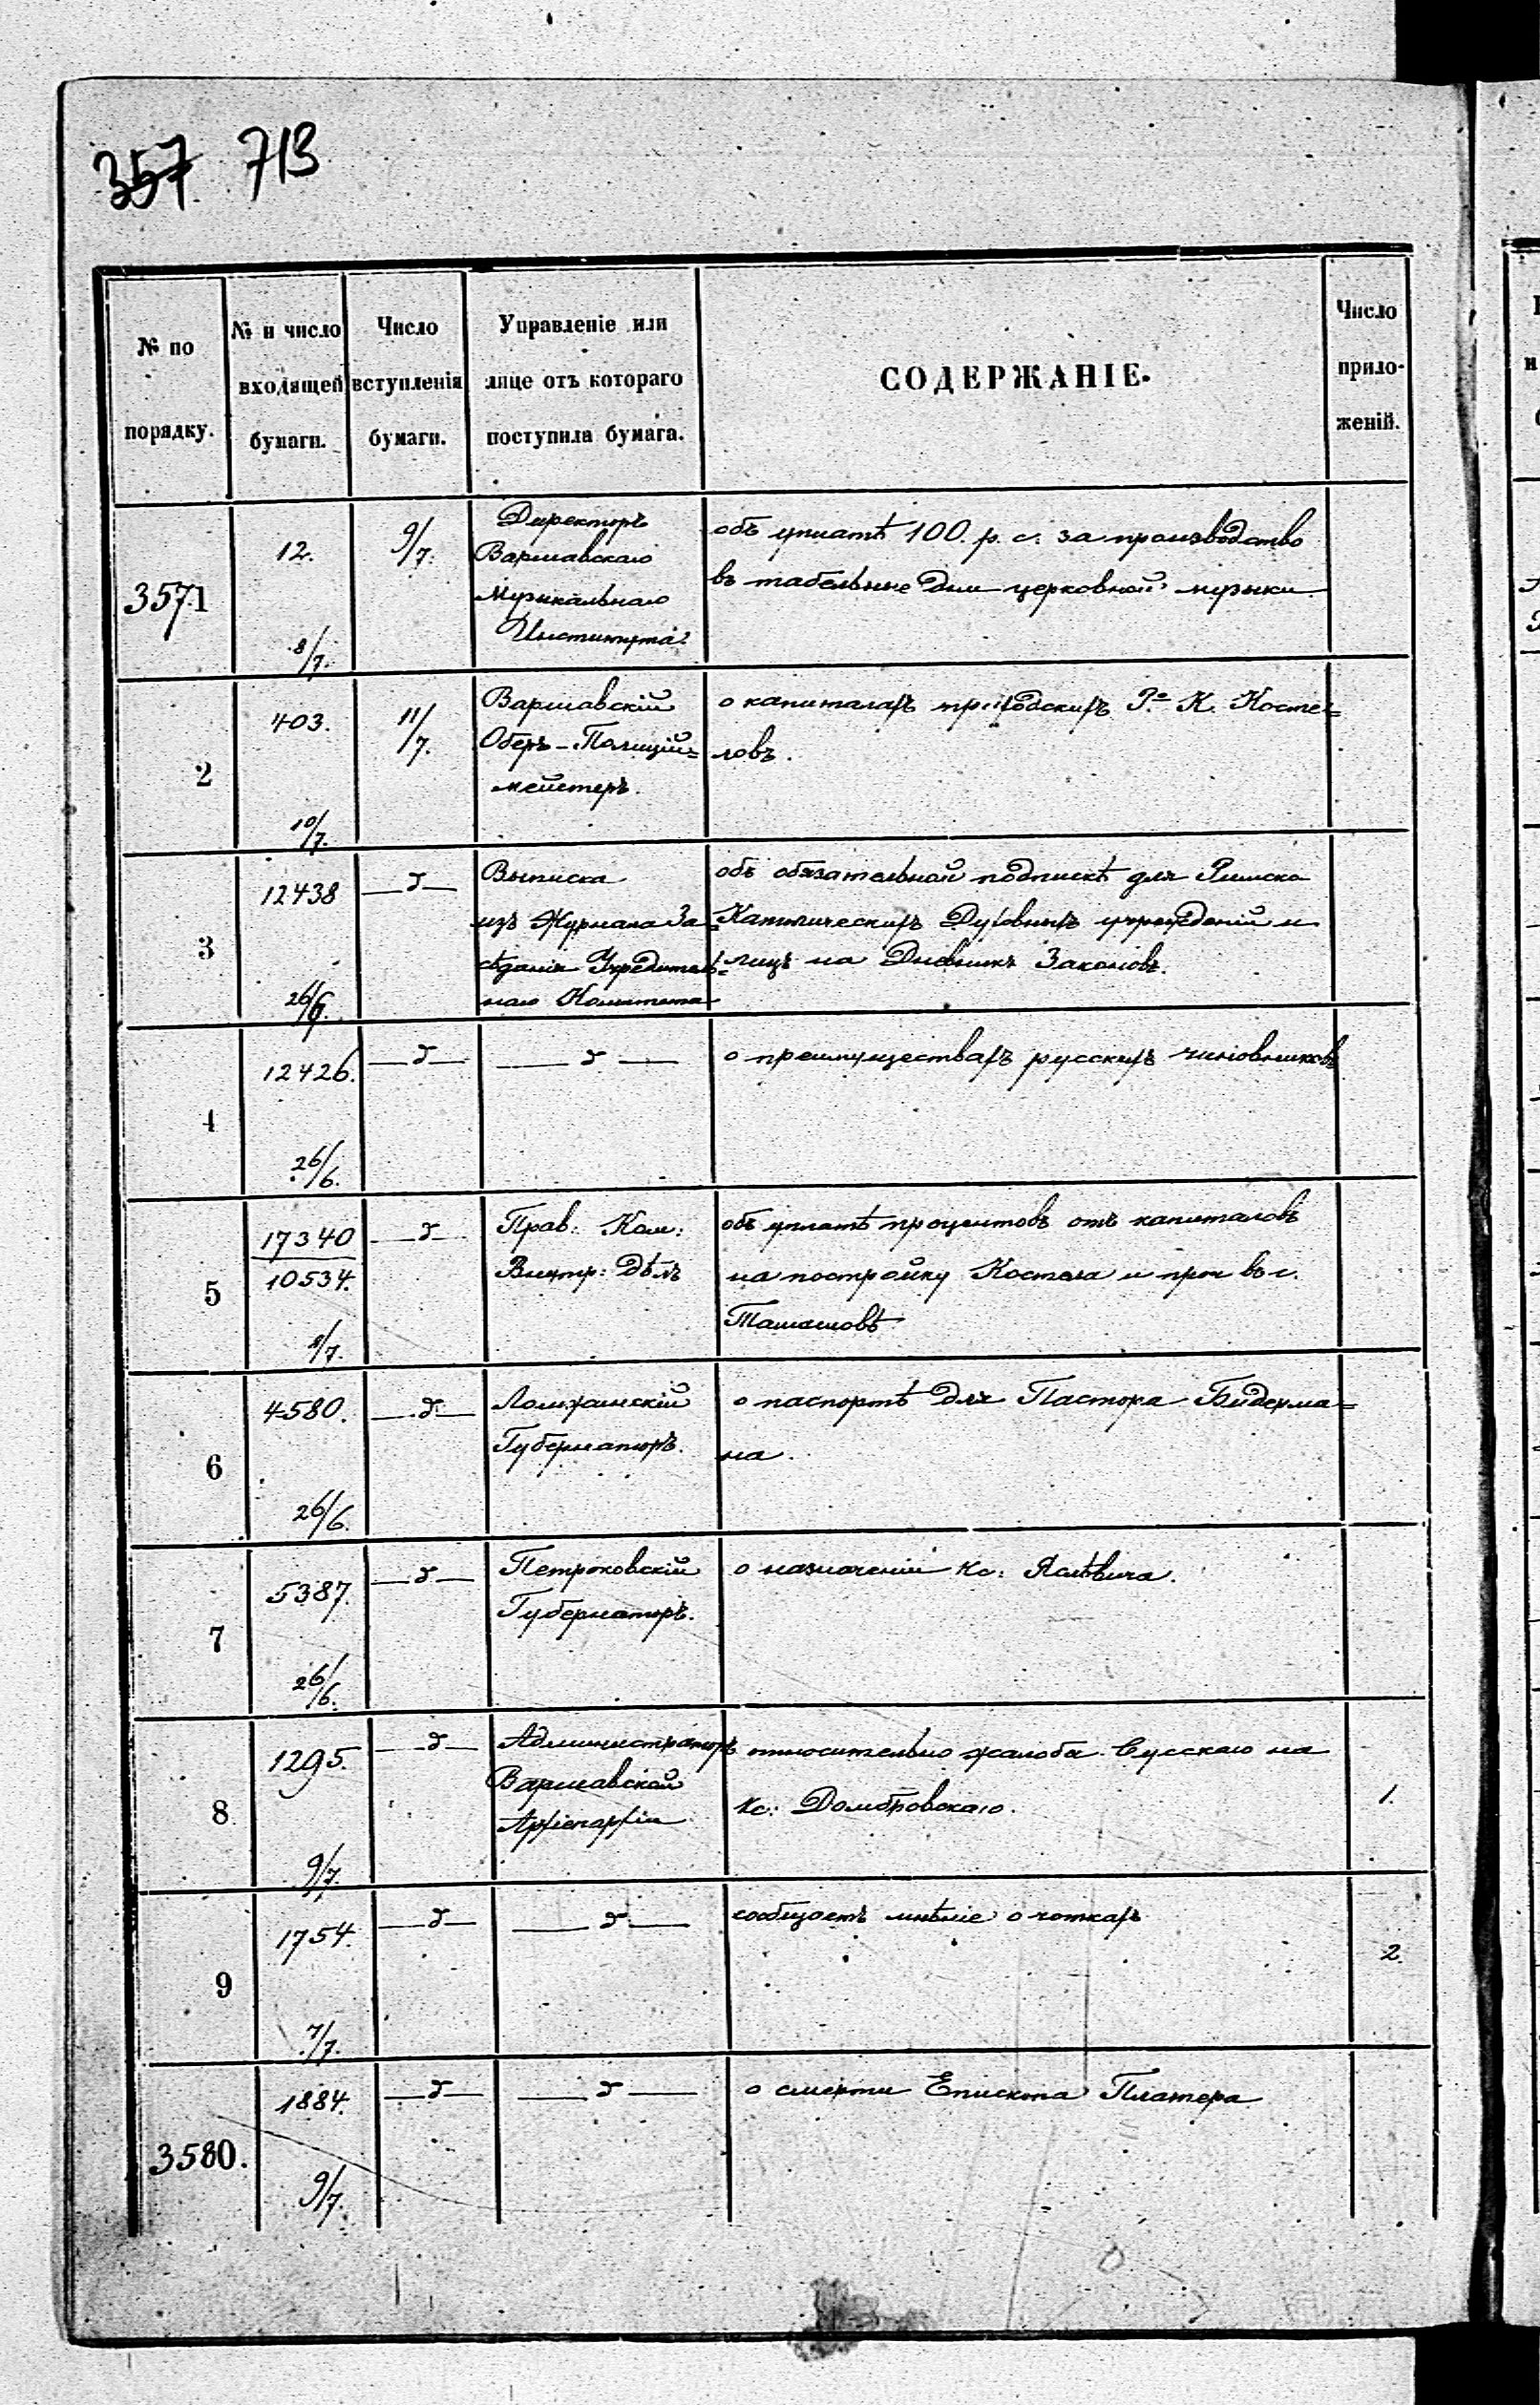 357 713
№ по
порядку.
№ и число
входящей
бумаги.
Число
вступленія
бумаги.
Управленіе или
лице отъ котораго
поступила бумага.
СОДЕРЖАНІЕ.
Число
прило-
женій.
3571
12.
8/7.
9/7.
Директоръ
Варшавскаго
Музыкальнаго
Института.
объ уплатѣ 100. р. с. за производство
въ табельные дни церковной музыки
2
403.
10/7.
11/7.
Варшавскій
Оберъ-Полицій=
мейстеръ.
о капиталахъ приходскихъ Р.º К. Косте=
ловъ.
3
12438
26/6.
—д—
Выписка
изъ Журнала За=
сѣданія Учредитель=
наго Комитета
объ обязательной подпискѣ для Римско
Католическихъ Духовныхъ учрежденій и
лицъ на Дневникъ Законовъ.
4
12426.
26/6.
—д—
—д—
о преимуществахъ русскихъ чиновниковъ
5
17340
10534.
8/7.
—д—
Прав: Ком:
Внутр: Дѣлъ
объ уплатѣ процентовъ отъ капиталовъ
на постройку Костела и проч въ с.
6
4580.
26/6.
—д—
Ломжинскій
Губернаторъ.
о паспортѣ для Пастора Бидерма=
на.
7
5387.
26/6.
—д—
Петроковскій
Губернаторъ.
о назначеніи Кс:
8
1295.
9/7.
—д—
Администраторъ
Варшавской
Архіепархіи
относительно жалоба на
Кс: Домбровскаго.
1.
9
1754.
7/7.
—д—
—д—
сообщаетъ мнѣніе о четкахъ
2.
3580.
1884.
9/7.
—д—
—д—
о смерти Епископа Платера